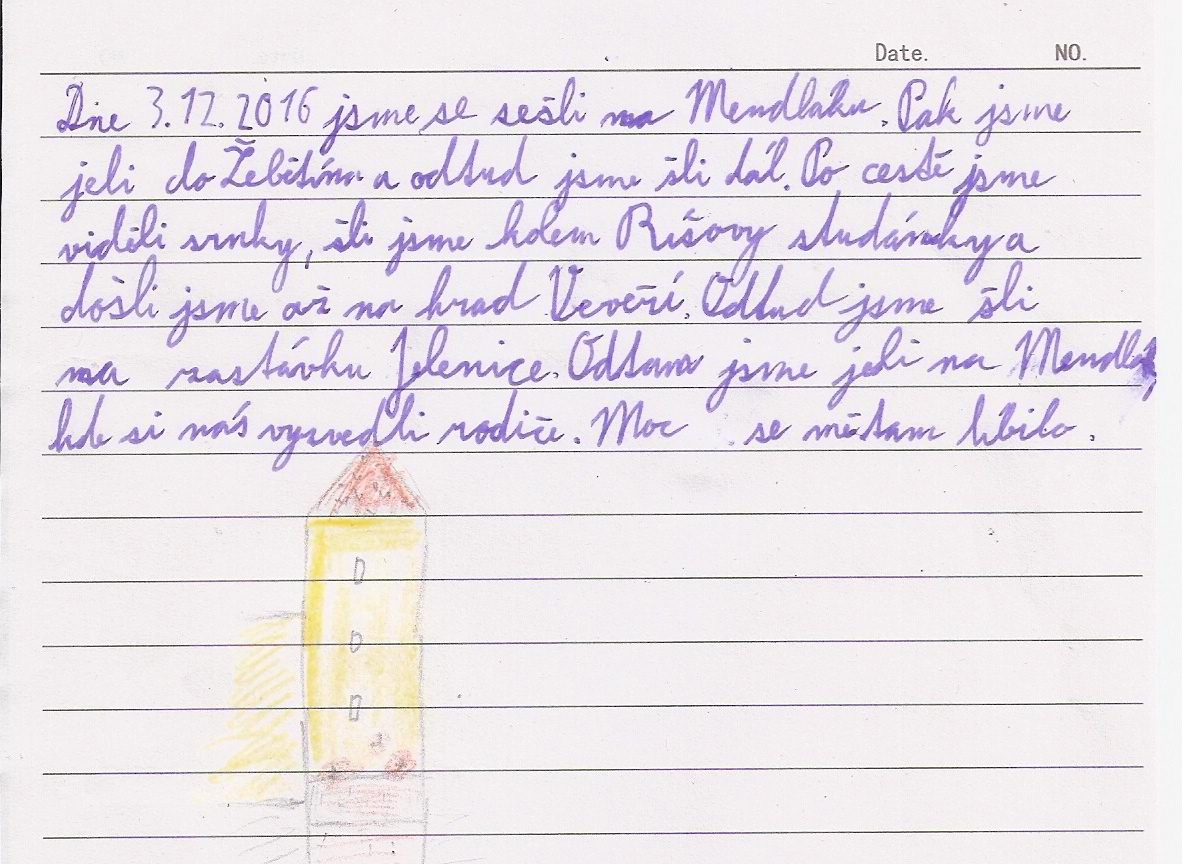 Date. NO.
Dne 3.12.2016 jsme se sešli na Mendláku. Pak jsme
jeli do Žebětína a odtud jsme šli dál. Po cestě jsme
viděli srnky, šli jsme kolem Ríšovy studánky a
došli jsme až na hrad Veveří. Odtud jsme šli
na zastávku Jelenice. Odtam jsme jeli na Mendlák,
kde si nás vyzvedli rodiče. Moc se mě tam líbilo.